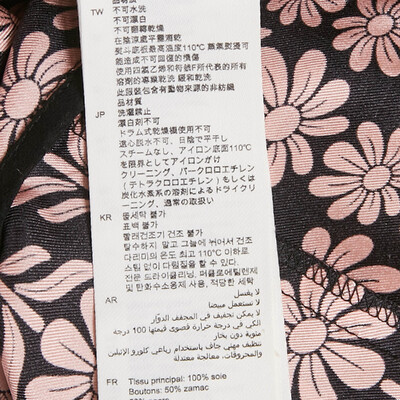 TW 不可水洗
不可漂白
不可翻轉乾燥
在陰涼處平攤晾乾
熨斗底板最高溫度110℃ 蒸氣熨燙可
能造成不可回復的損傷
使用四氯乙烯和符號F所代表的所有
溶劑的專業乾洗 緩和乾洗
此服裝包含有動物來源的非紡織
品材質
JP 洗濯禁止
漂白剤不可
ドラム式乾燥機使用不可
遠心脱水不可、日陰で平干し
スチームなし、アイロン底面110℃
を限界としてアイロンがけ
クリーニング、パークロロエチレン
(テトラクロロエチレン)もしくは
炭化水素系の溶剤によるドライクリ
ーニング、通常の扱い
KR 물세탁 불가
표백 불가
빨래건조기 건조 불가
탈수하지 말고 그늘에 뉘어서 건조
다리미의 온도 최고 110℃ 이하로
스팀 없이 다림질을 할 수 있다
전문 드라이클리닝, 퍼클로에틸렌제
및 탄화수소용제 사용, 적당한 세탁
AR لا يغسل
لا تستعمل مبيضا
لا يمكن تجفيفه في المجفف الدوّار
الكي في درجة حرارة قصوى قيمتها 100 درجة
مئوية دون بخار
تنظيف جاف باستخدام رباعي كلورو الإثيلين
والمحروقات. معالجة عادية.
FR Tissu principal: 100% soie
Boutons: 50% zamac